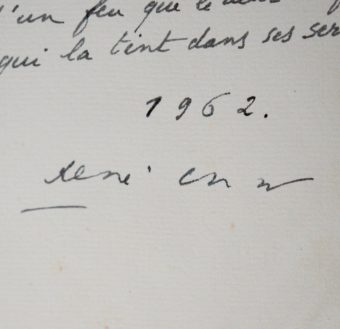 d'un feu que le
qui la tint dans ses ser
1962.
René Char